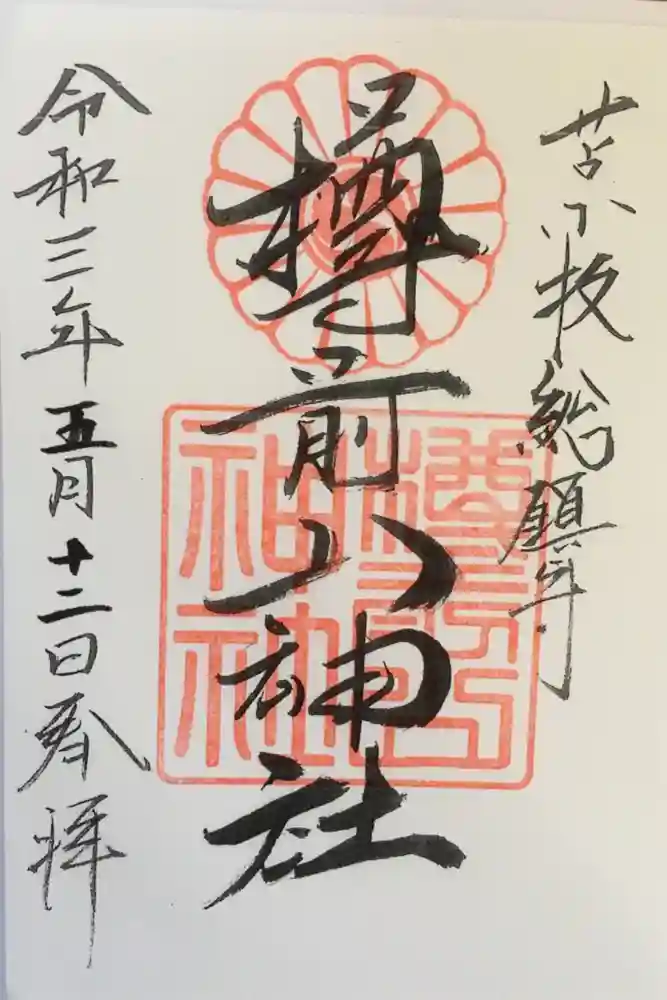 苫小牧総鎮守
樽前山神社
樽前山
神社
令和三年五月十二日奉拝